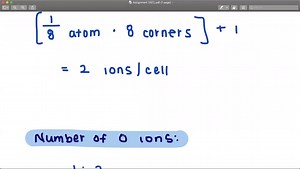 [1/8 atom · 8 corners] + 1
= 2 ions/cell
Number of O ions: